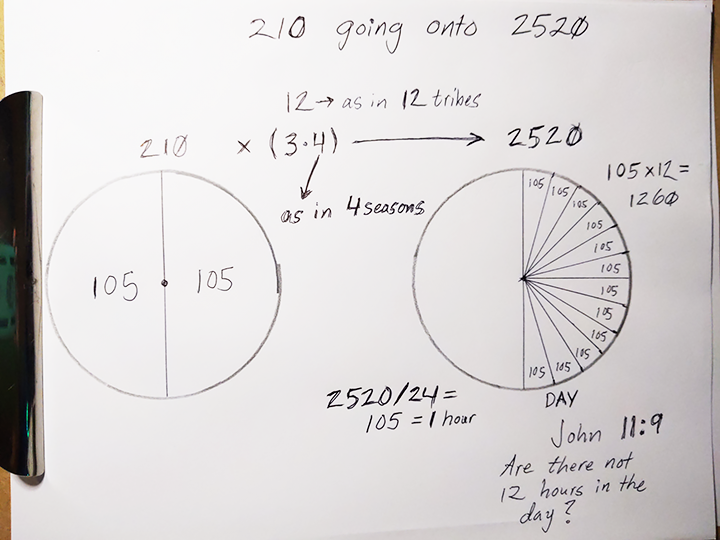 210 going onto 2520
12 → as in 12 tribes
210 × (3·4) → 2520
as in 4 seasons
105 × 12 =
1260
105 105
105
105
105
105
105
105
105
105
105
105
105
105
2520/24 =
105 = 1 hour
DAY
John 11:9
Are there not
12 hours in the
day?